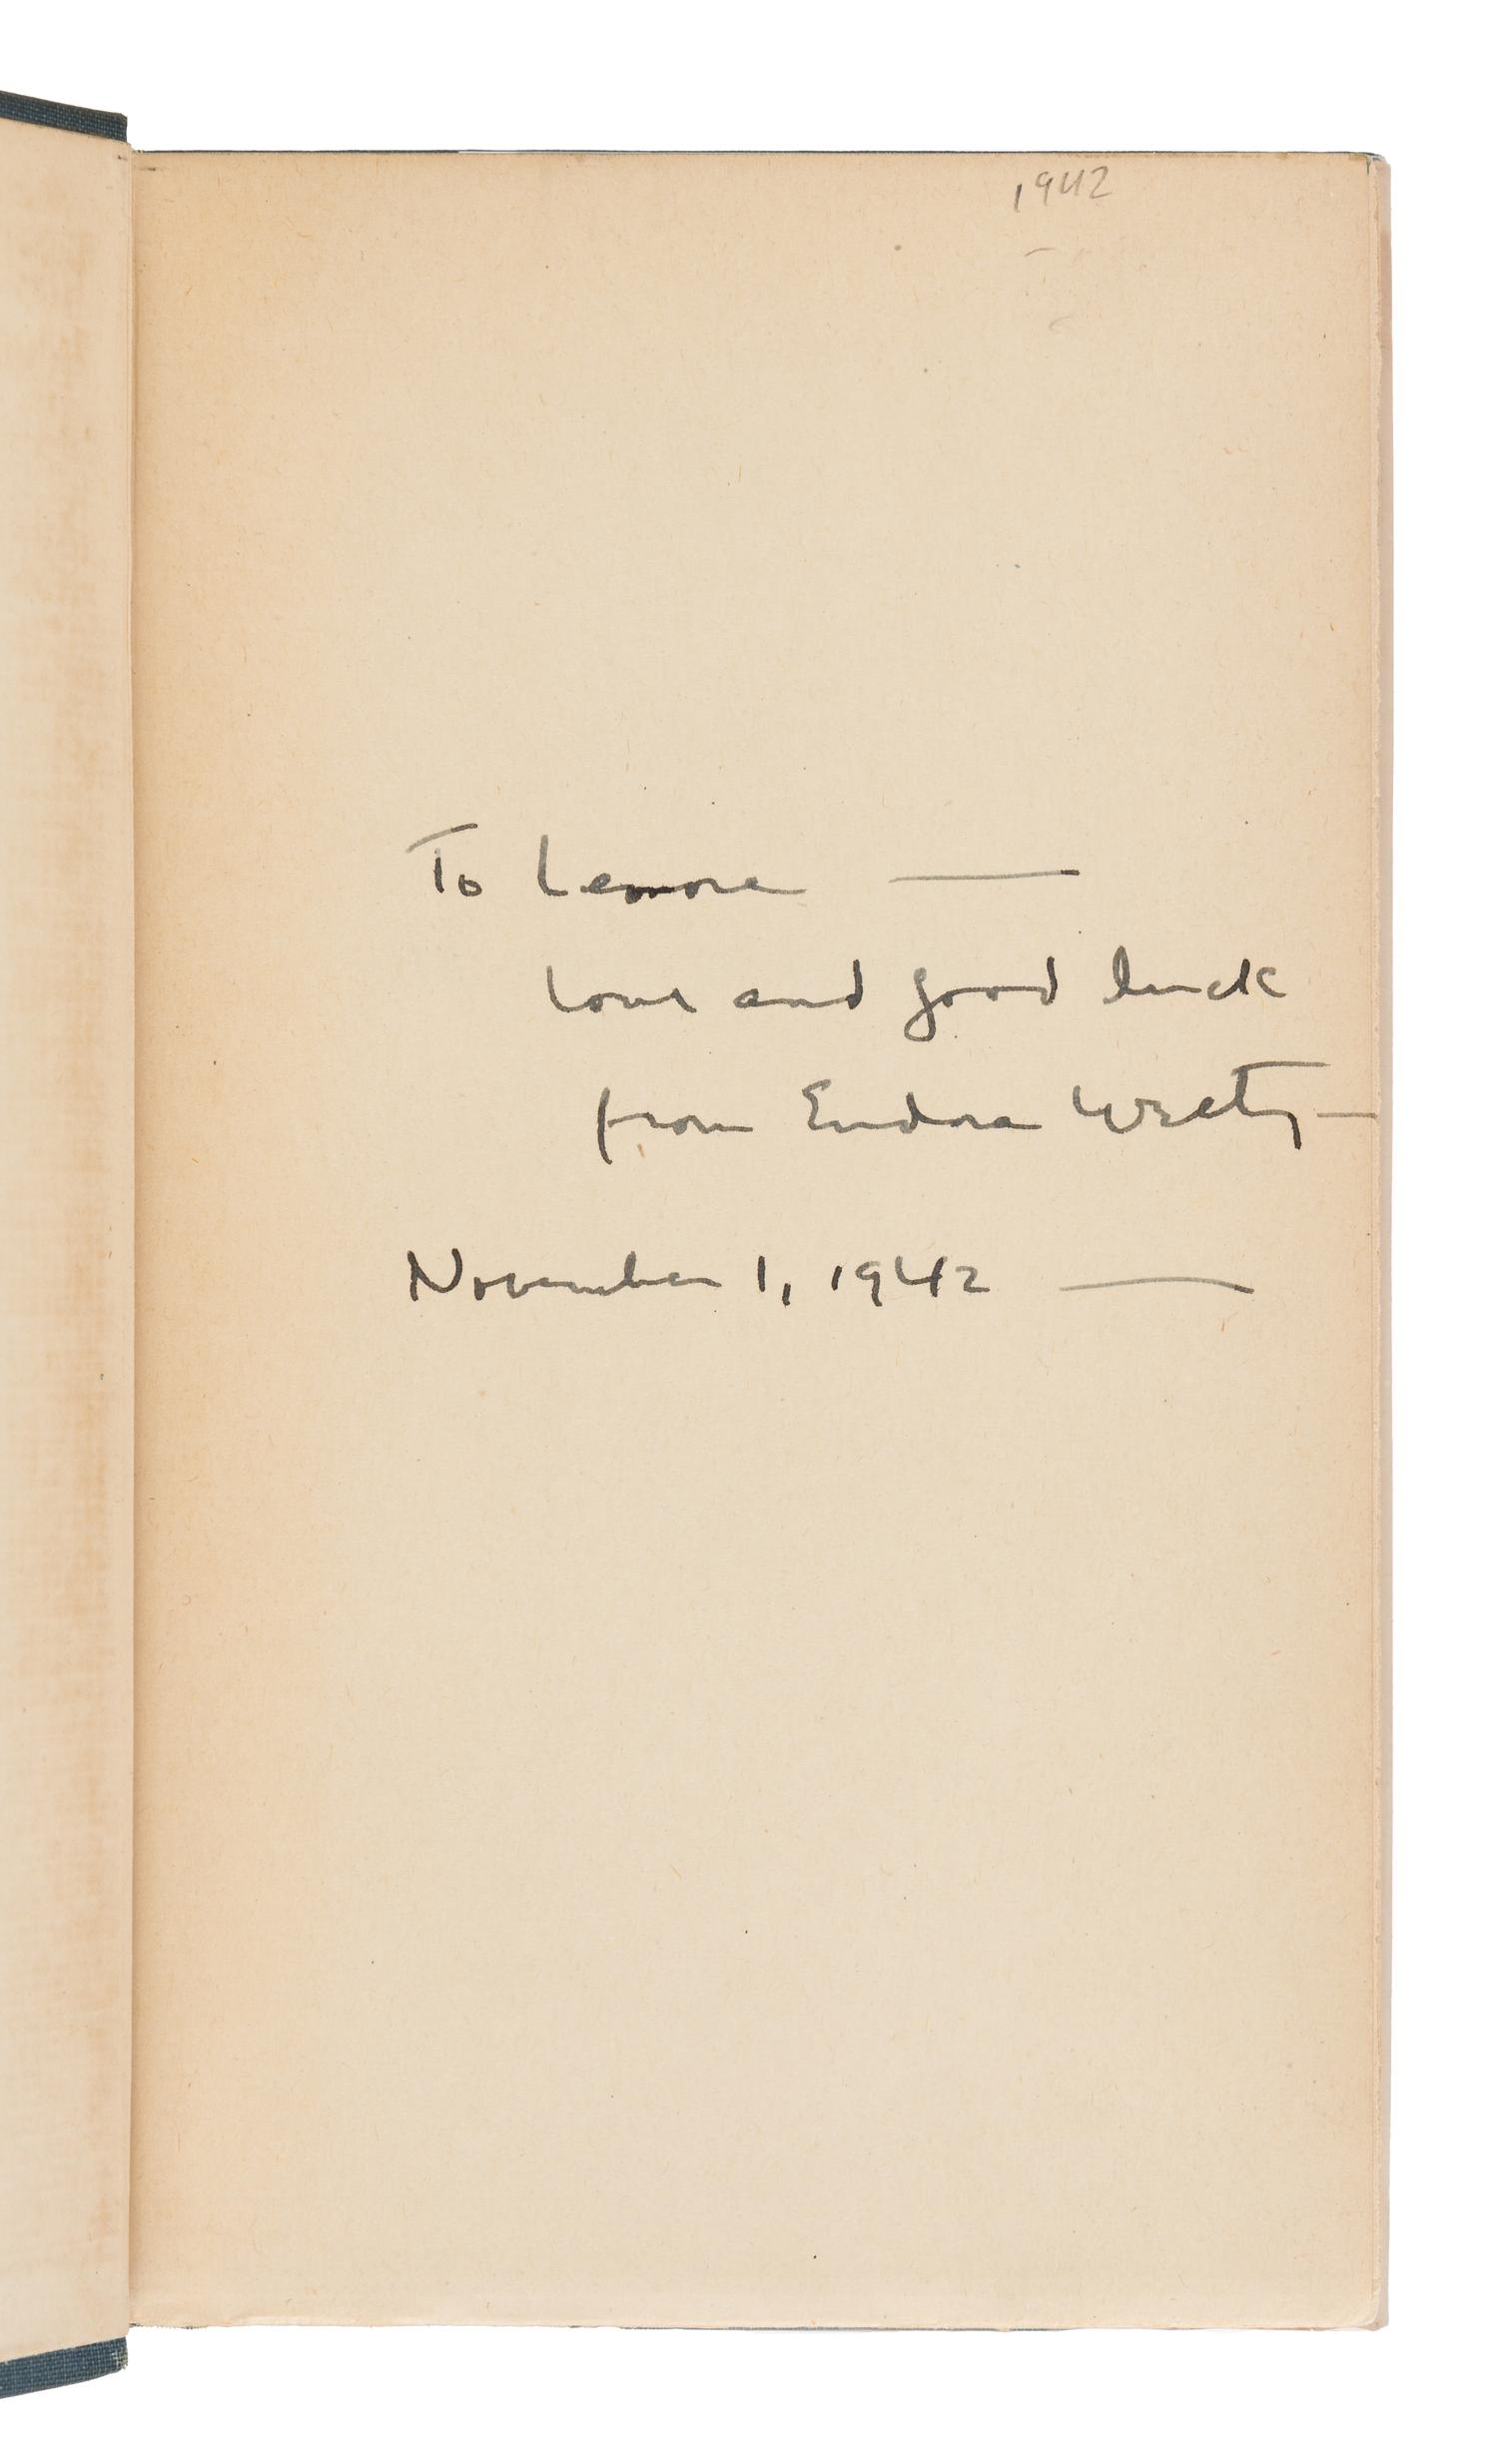 1942
To Lenore —
love and good luck
from Eudora Welty —
November 1, 1942 —